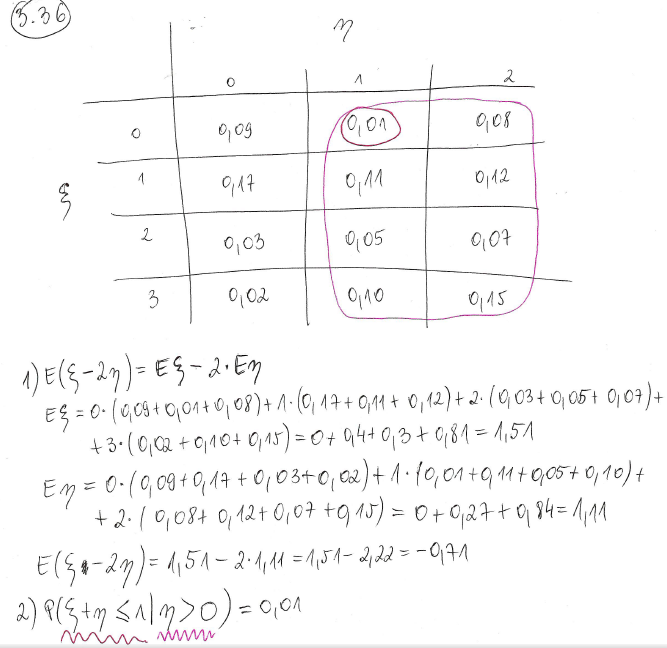 3.36
η
0 1 2
0 0,09 0,01 0,08
ξ
1 0,17 0,11 0,12
2 0,03 0,05 0,07
3 0,02 0,10 0,15
1) E(ξ-2η) = Eξ - 2·Eη
Eξ = 0·(0,09+0,01+0,08)+1·(0,17+0,11+0,12)+2·(0,03+0,05+0,07)+
+3·(0,02+0,10+0,15) = 0+0,4+0,3+0,81 = 1,51
Eη = 0·(0,09+0,17+0,03+0,02)+1·(0,01+0,11+0,05+0,10)+
+2·(0,08+0,12+0,07+0,15) = 0+0,27+0,84 = 1,11
E(ξ-2η) = 1,51 - 2·1,11 = 1,51 - 2,22 = -0,71
2) P(ξ+η ≤ 1 | η > 0) = 0,01